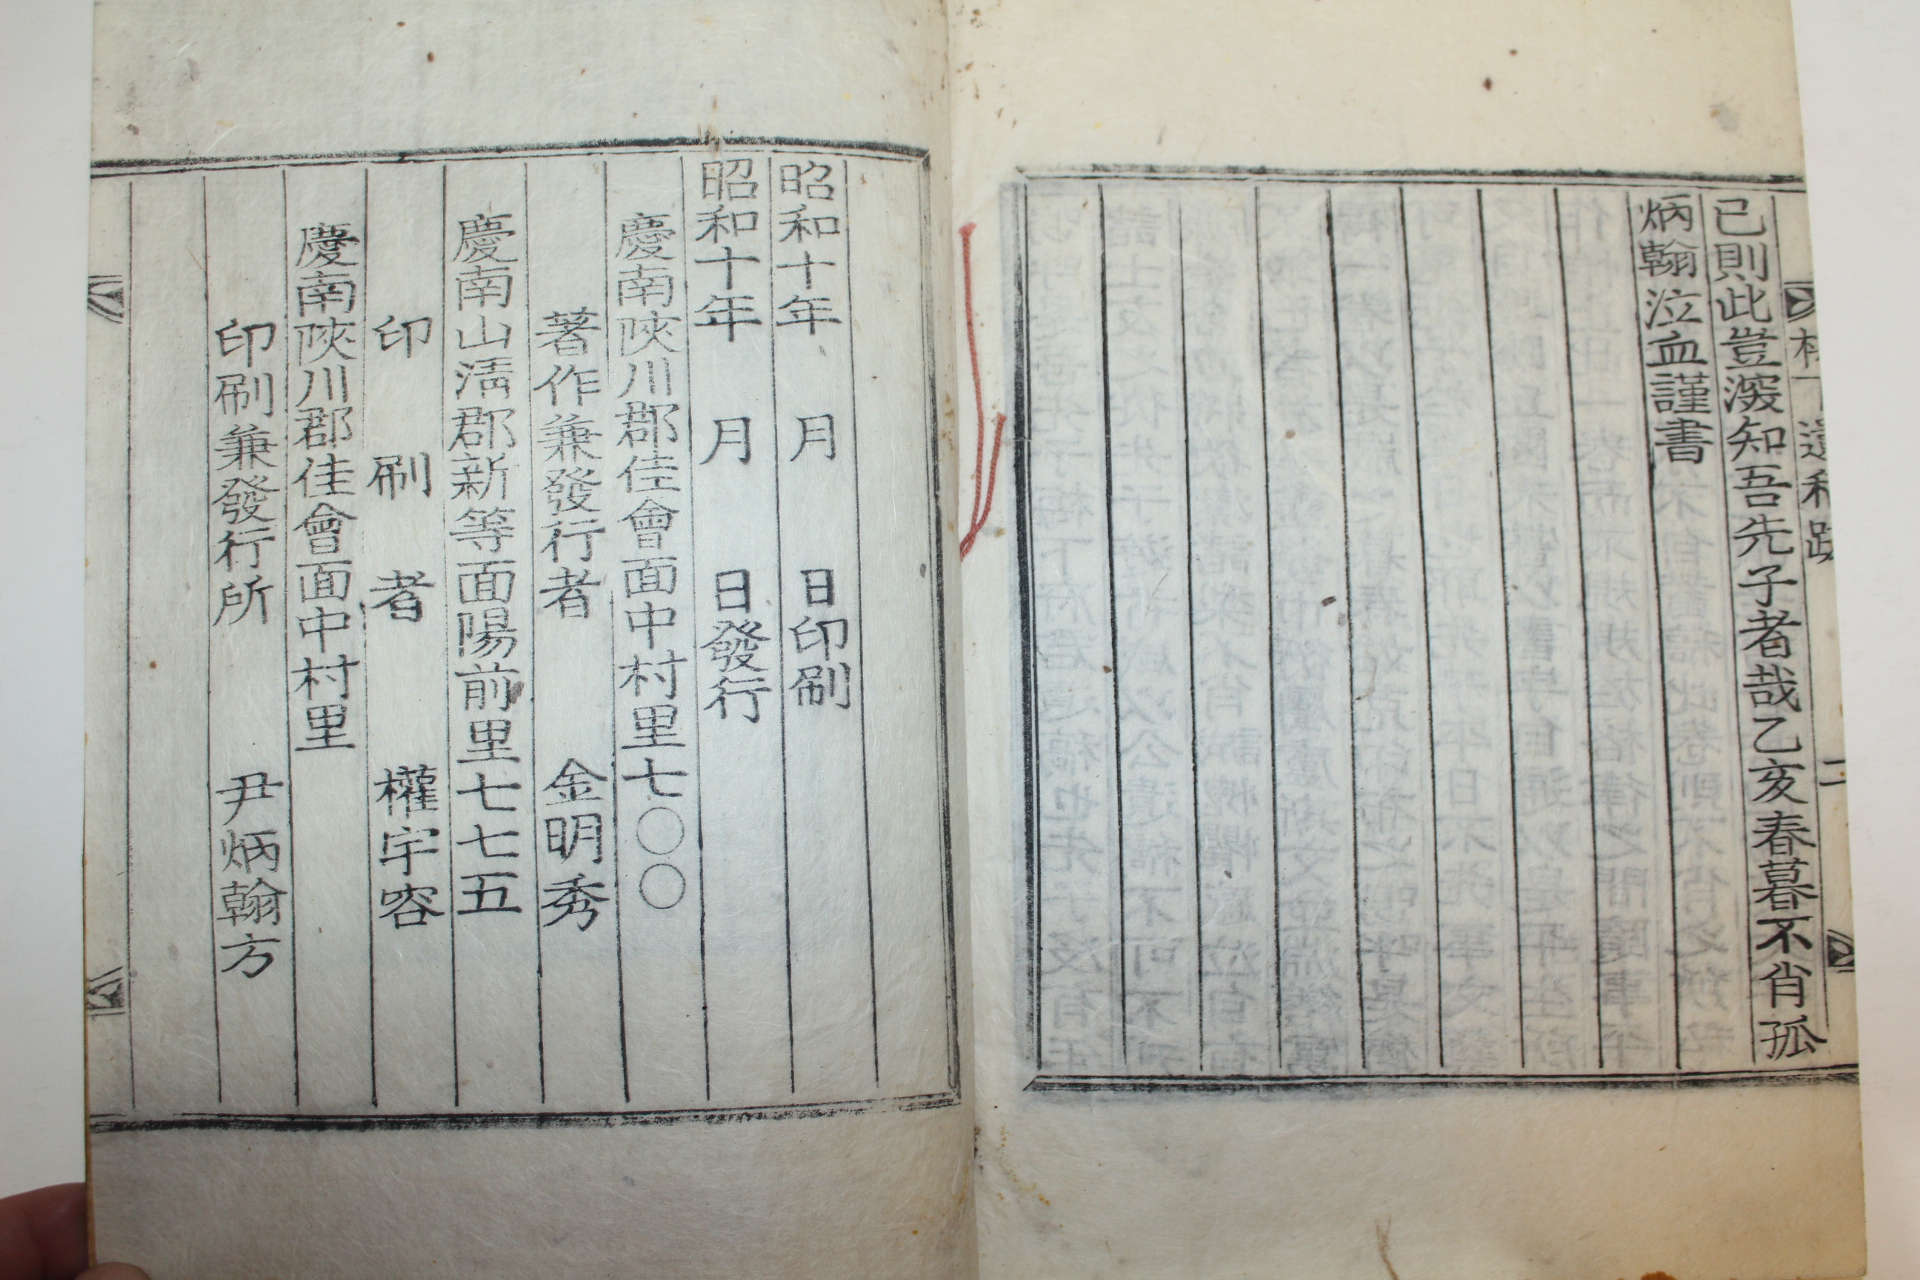 已則此豈深知吾先子者哉乙亥春暮不肖孤
炳翰泣血謹書
遺稿跋
二
昭和十年 月 日印刷
昭和十年 月 日發行
慶南陜川郡佳會面中村里七〇〇
著作兼發行者 金明秀
慶南山淸郡新等面陽前里七七五
印刷者 權宇容
慶南陜川郡佳會面中村里
印刷兼發行所 尹炳翰方